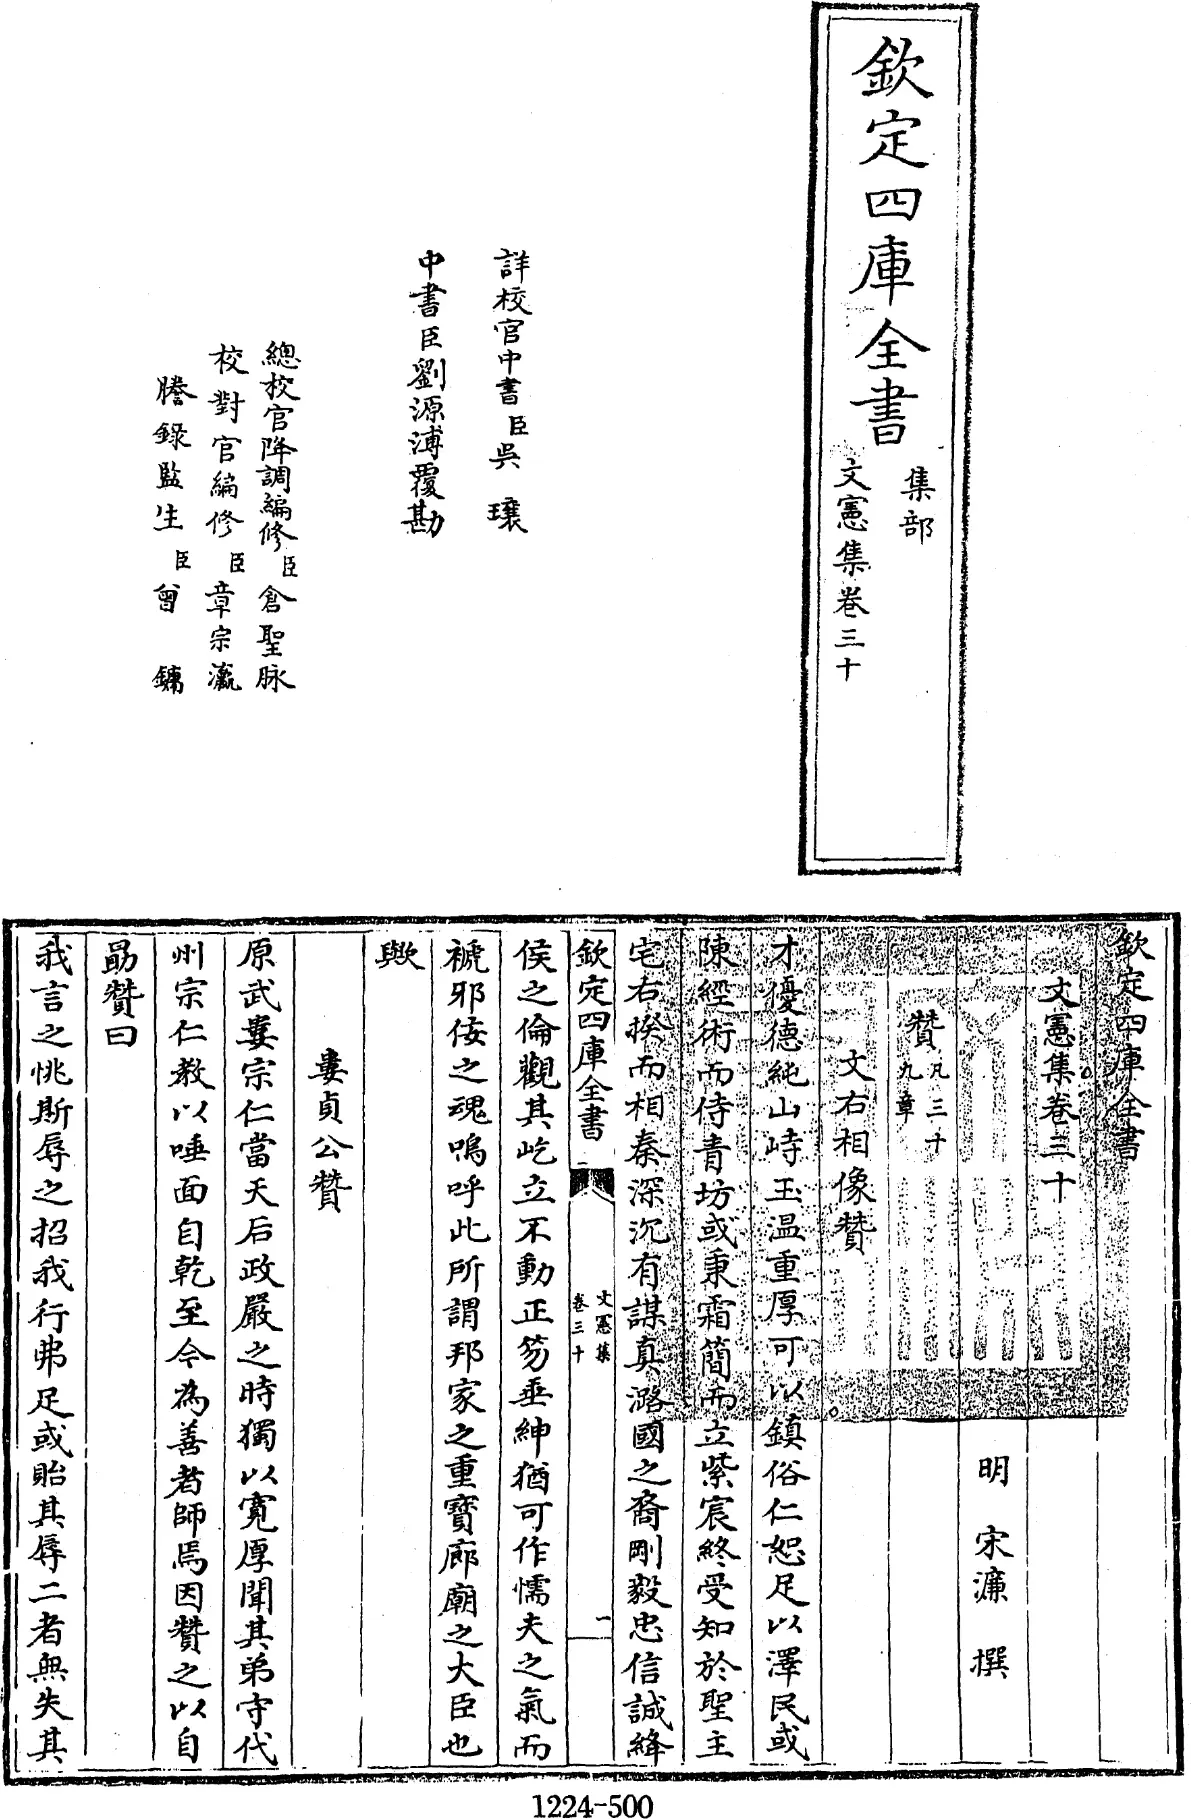 欽定四庫全書
集部
文憲集卷三十
詳校官中書臣吳瓖
中書臣劉源溥覆勘
總校官降調編修臣倉聖脉
校對官編修臣章宗瀛
謄錄監生臣曾鏞
欽定四庫全書
文憲集卷三十
明 宋濂 撰
贊凡三十九章
文右相像贊
才優德純山峙玉温重厚可以鎮俗仁恕足以澤民或
陳經術而侍青坊或秉霜簡而立紫宸終受知於聖主
宅右揆而相秦深沉有謀真潞國之裔剛毅忠信誠絳
欽定四庫全書
文憲集
卷三十
一
侯之倫觀其屹立不動正笏垂紳猶可作懦夫之氣而
褫邪佞之魂嗚呼此所謂邦家之重寶廊廟之大臣也
歟
婁貞公贊
原武婁宗仁當天后政嚴之時獨以寛厚聞其弟守代
州宗仁教以唾面自乾至今為善者師焉因贊之以自
勗贊曰
我言之恌斯辱之招我行弗足或貽其辱二者無失其
1224-500